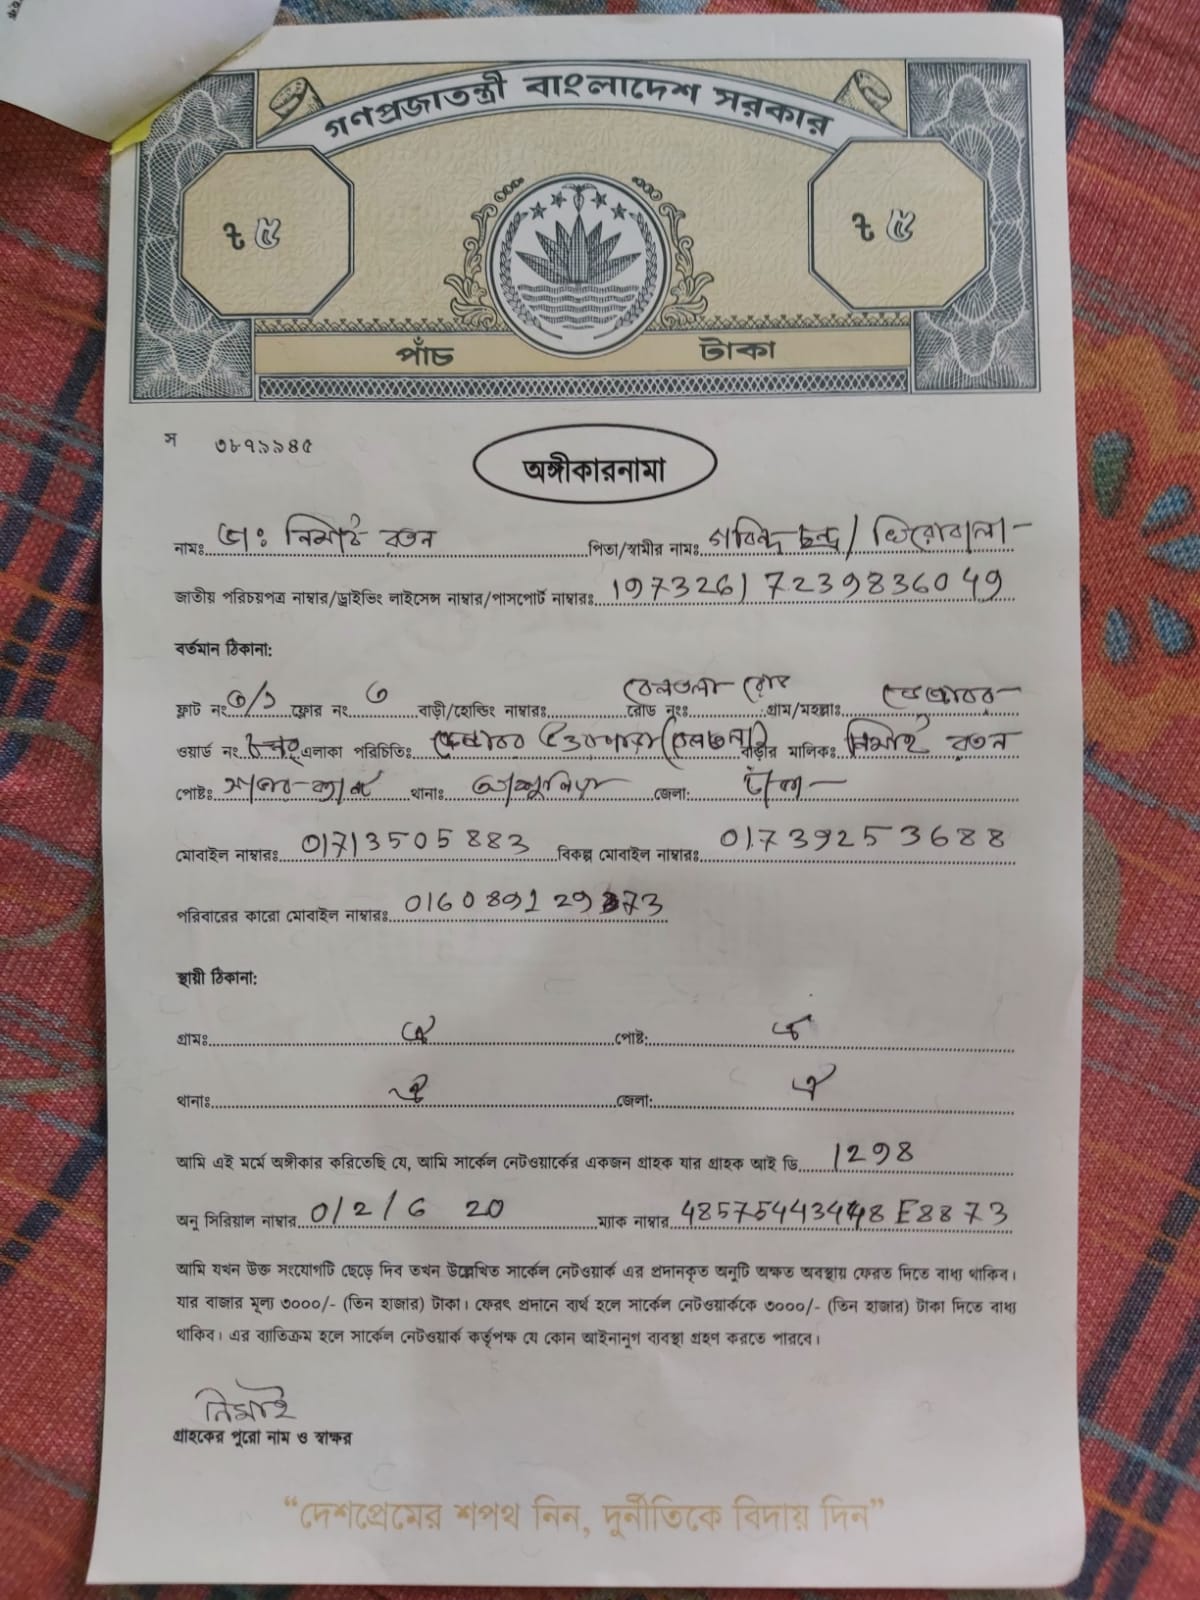 গণপ্রজাতন্ত্রী বাংলাদেশ সরকার
৳ ৫ ৳ ৫
পাঁচ টাকা
স ৩৮৭১১৪৫
অঙ্গীকারনামা
নামঃ ডাঃ নিমাই রতন পিতা/স্বামীর নামঃ গবিন্দ্র চন্দ্র /
জাতীয় পরিচয়পত্র নাম্বার/ড্রাইভিং লাইসেন্স নাম্বার/পাসপোর্ট নাম্বারঃ 1973261723983604९
বর্তমান ঠিকানা:
ফ্লাট নং ৩/১ ফ্লোর নং ৩ বাড়ী/হোল্ডিং নাম্বারঃ রোড নংঃ বেলতলা রোড গ্রাম/মহল্লাঃ
ওয়ার্ড নং এলাকা পরিচিতিঃ বাড়ীর মালিকঃ নিমাই রতন
পোষ্টঃ থানাঃ আশুলিয়া জেলা: ঢাকা
মোবাইল নাম্বারঃ 01713505883 বিকল্প মোবাইল নাম্বারঃ 01739253688
পরিবারের কারো মোবাইল নাম্বারঃ
স্থায়ী ঠিকানা:
গ্রামঃ ঐ পোষ্ট: ঐ
থানাঃ ঐ জেলা: ঐ
আমি এই মর্মে অঙ্গীকার করিতেছি যে, আমি সার্কেল নেটওয়ার্কের একজন গ্রাহক যার গ্রাহক আই ডি 1298
অনু সিরিয়াল নাম্বার 0/2/6 20 ম্যাক নাম্বার
আমি যখন উক্ত সংযোগটি ছেড়ে দিব তখন উল্লেখিত সার্কেল নেটওয়ার্ক এর প্রদানকৃত অনুটি অক্ষত অবস্থায় ফেরত দিতে বাধ্য থাকিব।
যার বাজার মূল্য ৩০০০/- (তিন হাজার) টাকা। ফেরৎ প্রদানে ব্যর্থ হলে সার্কেল নেটওয়ার্ককে ৩০০০/- (তিন হাজার) টাকা দিতে বাধ্য
থাকিব। এর ব্যাতিক্রম হলে সার্কেল নেটওয়ার্ক কর্তৃপক্ষ যে কোন আইনানুগ ব্যবস্থা গ্রহণ করতে পারবে।
নিমাই
গ্রাহকের পুরো নাম ও স্বাক্ষর
“দেশপ্রেমের শপথ নিন, দুর্নীতিকে বিদায় দিন”